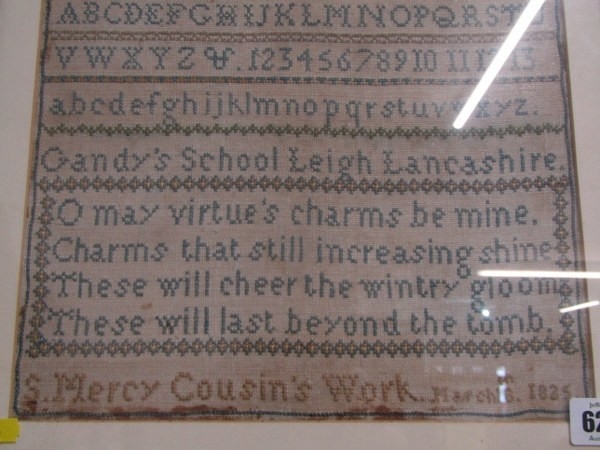 ABCDEFGHIJKLMNOPQRST
VWXYZ &. 12345678910 11 12 13
abcdefghijklmnopqrstuvwxyz.
Gandy's School Leigh Lancashire.
O may virtue's charms be mine.
Charms that still increasing shine
These will cheer the wintry gloom
These will last beyond the tomb.
S. Mercy Cousin's Work. March
62